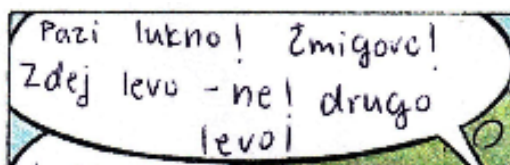 Pazi lukno! Žmigovc!
Zdej levo - ne! drugo
levo!